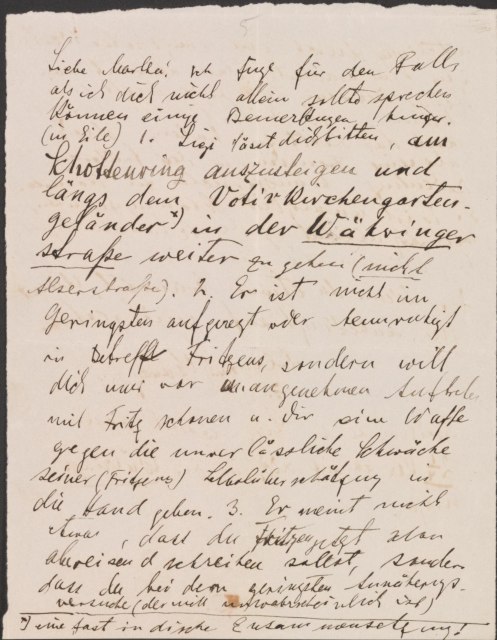 5
Liebe Martha! Ich füge für den Fall,
als ich dich nicht allein sollte sprechen
können einige Bemerkungen hinzu.
(in Eile) 1. Sigi lässt dich bitten, am
Schottenring auszusteigen und
längs dem Votivkirchengarten-
geländer*) in der Währinger
straße weiter zu gehen (nicht
Alserstraße). 2. Er ist nicht im
Geringsten aufgeregt oder beunruhigt
in Betreff Fritzens, sondern will
dich nur vor unangenehmen Auftritten
mit Fritz schonen u. dir eine Waffe
gegen die unverlässliche Schwäche
seiner (Fritzens) Selbstüberschätzung in
die Hand geben. 3. Er meint nicht
etwa, dass du Fritzen jetzt
abweisend schreiben sollst, sondern
dass du bei dem geringsten Annäherungs-
versuche (der wohl unwahrscheinlich ist)
*) eine fast indische Zusammensetzung!